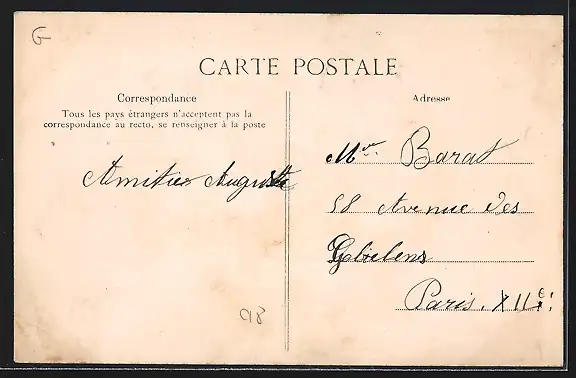 G
CARTE POSTALE
Correspondance
Tous les pays étrangers n'acceptent pas la
correspondance au recto, se renseigner à la poste
Amitiés Auguste
98
Adresse
Mme Barat
58 Avenue des
Gobelens
Paris. XIIIe